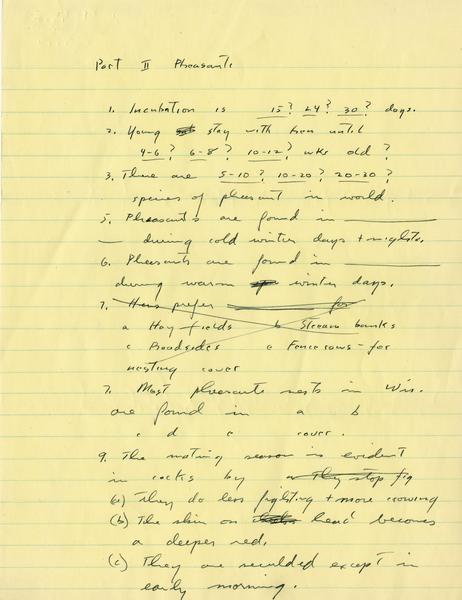 Part II Pheasants
1. Incubation is 15? 24? 30? days.
2. Young stay with hen until
4-6? 6-8? 10-12? wks old?
3. There are 5-10? 10-20? 20-30?
species of pheasant in world.
5. Pheasants are found in
during cold winter days + nights.
6. Pheasants are found in
during warm winter days.
7. Hens prefer for
a Hay fields b Stream banks
c Roadsides e Fencerows - for
nesting cover
7. Most pheasants nests in Wis.
are found in a b
c d e cover.
9. The mating season is evident
in cocks by a They stop fig
(a) They do less fighting + more crowing
(b) The skin on head becomes
a deeper red.
(c) They are secluded except in
early morning.